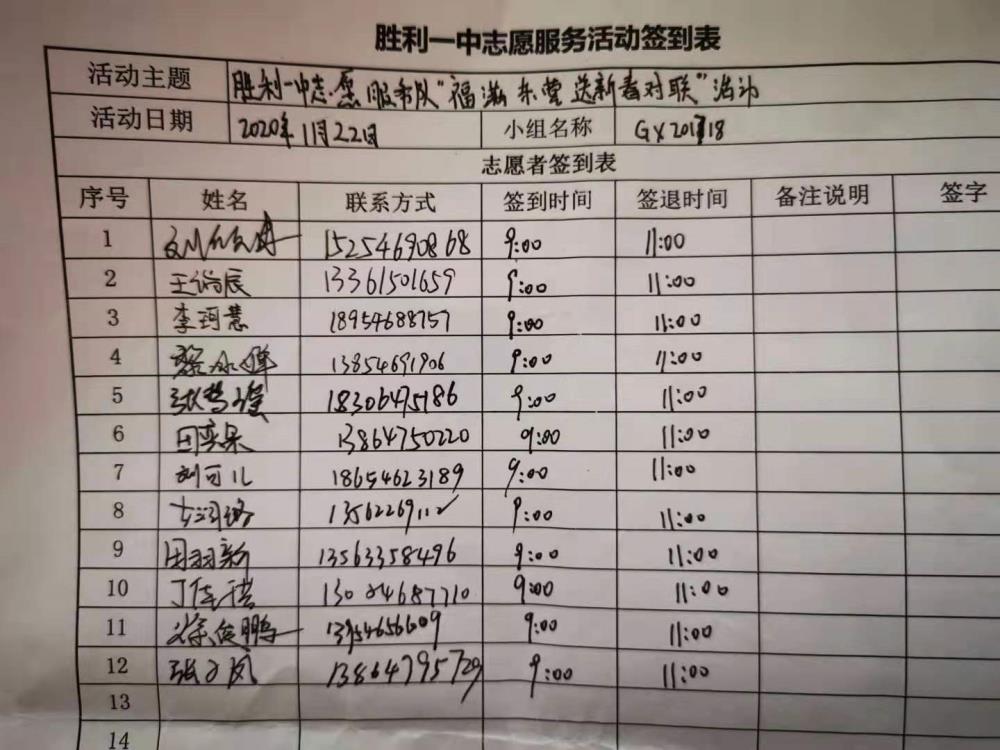 胜利一中志愿服务活动签到表
活动主题 胜利一中志愿服务队"福满东营送新春对联"活动
活动日期 2020年11月22日 小组名称 GX201718
志愿者签到表
序号 姓名 联系方式 签到时间 签退时间 备注说明 签字
1 15254690868 9:00 11:00
2 13361501659 9:00 11:00
3 李珂慧 18954688757 9:00 11:00
4 13854691906 9:00 11:00
5 18306475186 9:00 11:00
6 田奕果 13864750220 9:00 11:00
7 刘可儿 18654623189 9:00 11:00
8 9:00 11:00
9 田羽新 13563358496 9:00 11:00
10 9:00 11:00
11 徐俊鹏 9:00 11:00
12 张子凤 13864795729 9:00 11:00
13
14